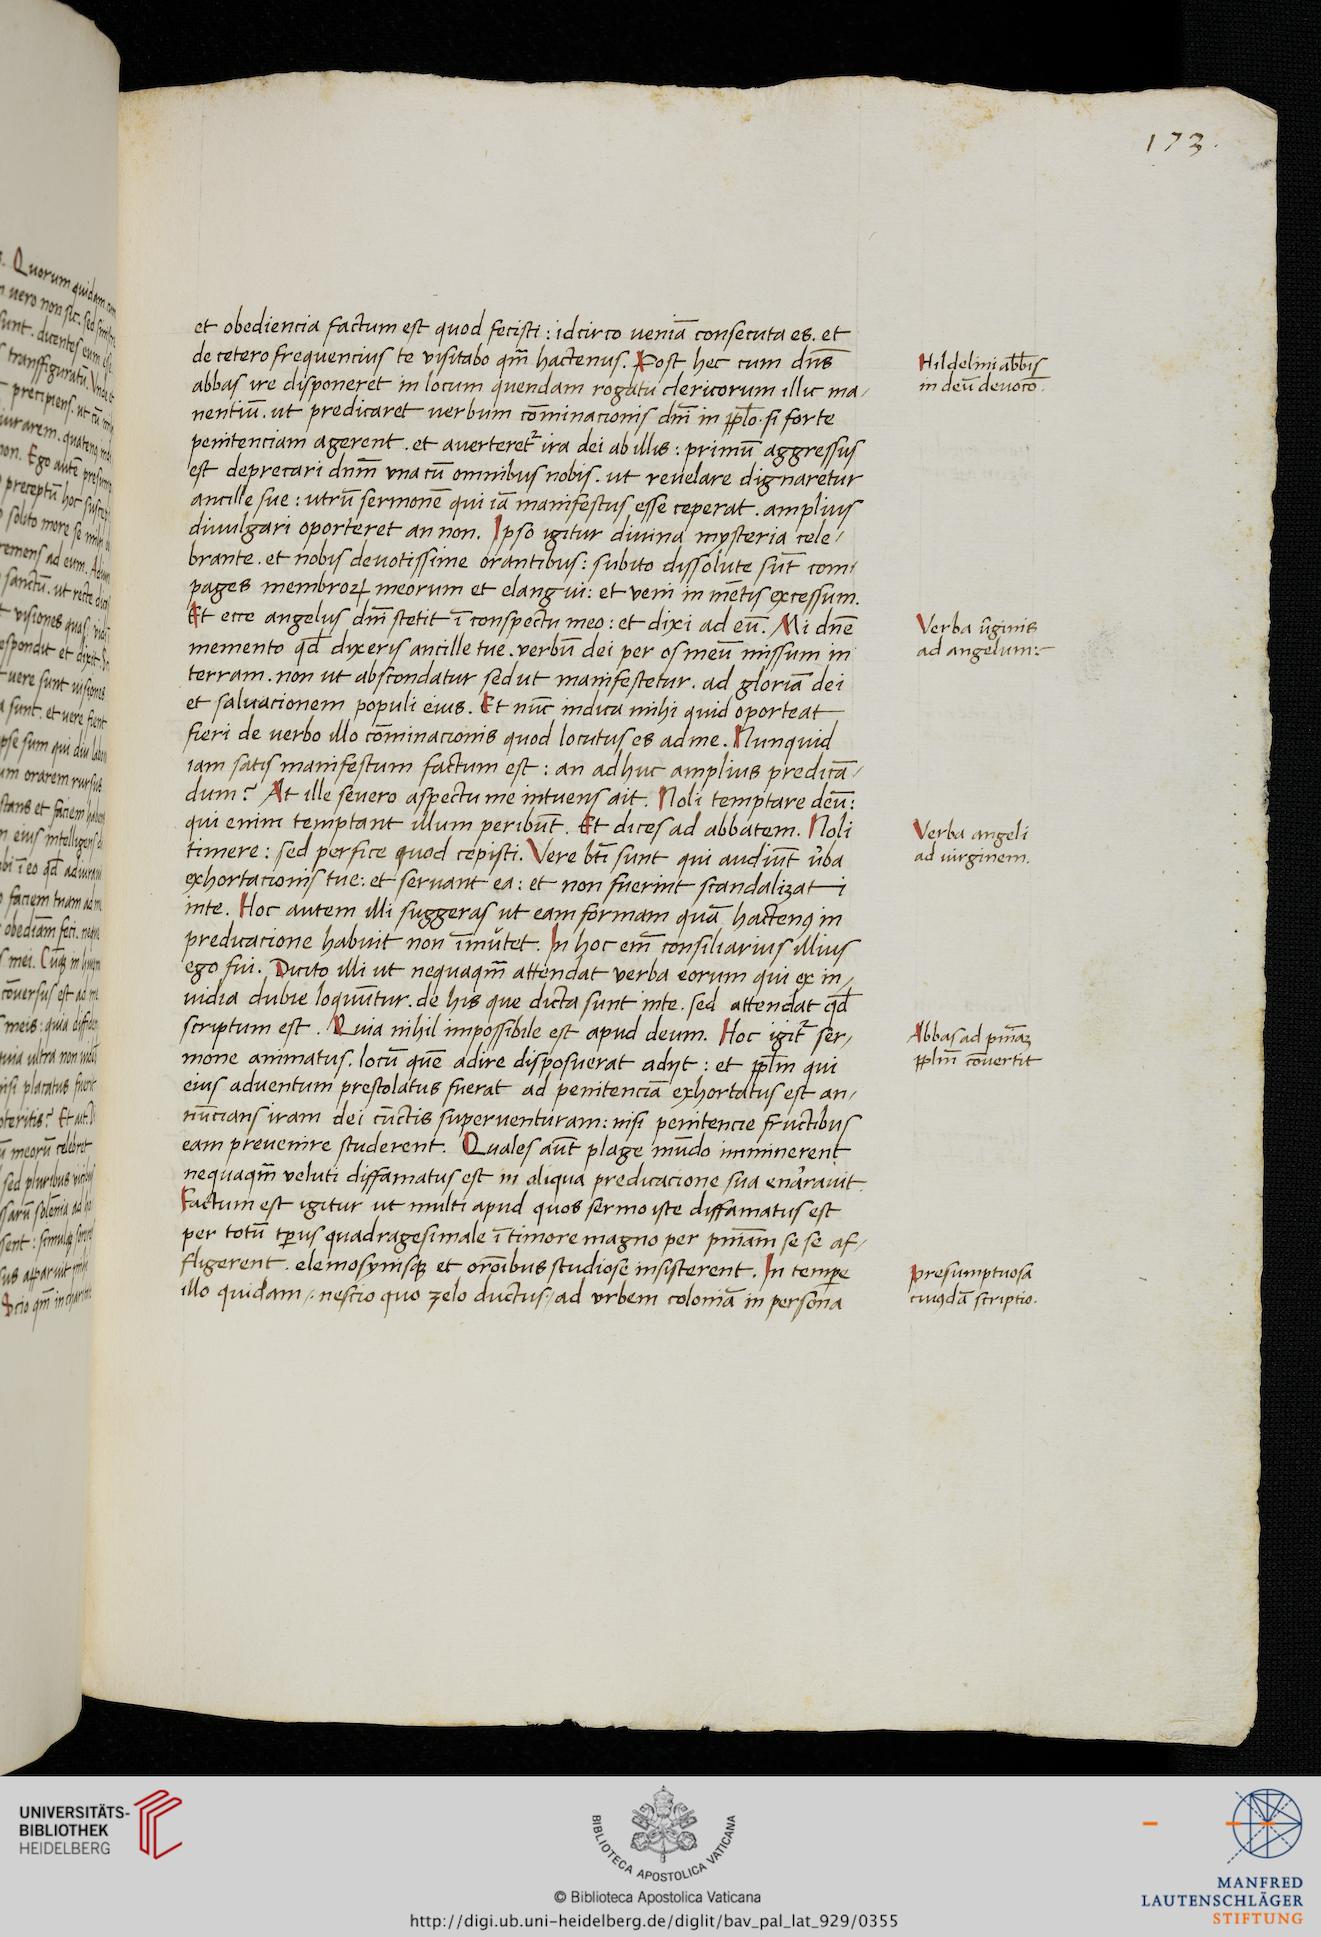 173.
et obediencia factum est quod fecisti : idcirco ueniā consecuta es. et
de cetero frequencius te visitabo qm̄ hactenus. Post hec cum dn̄s
abbas ire disponeret in locum quendam rogatu clericorum illic ma-
nentiū. ut predicaret uerbum cōminacionis dn̄i in pp̄lo. si forte
penitenciam agerent. et auerteret᷑ ira dei ab illis : primū aggressus
est deprecari dnm̄ vna cū omnibus nobis. ut reuelare dignaretur
ancille sue : utrū sermonē qui iā manifestus esse ceperat. amplius
diuulgari oporteret an non. Ipso igitur diuina mysteria cele-
brante. et nobis deuotissime orantibus : subito dissolute sūt com-
pages membroꝝ meorum et elangui : et veni in mētis excessum.
Et ecce angelus dn̄i stetit ī conspectu meo : et dixi ad eū. Mi dn̄e
memento qd̄ dixeris ancille tue. verbū dei per os meū missum in
terram. non ut abscondatur sed ut manifestetur. ad gloriā dei
et saluacionem populi eius. Et nūc indica mihi quid oporteat
fieri de uerbo illo cōminacionis quod locutus es ad me. Nunquid
iam satis manifestum factum est : an adhuc amplius predicā-
dum? At ille seuero aspectu me intuens ait. Noli temptare deū :
qui enim temptant illum peribūt. Et dices ad abbatem. Noli
timere : sed perfice quod cepisti. Vere bt̄i sunt qui audiūt v̉ba
exhortacionis tue : et seruant ea : et non fuerint scandalizati
in te. Hoc autem illi suggeras ut eam formam quā hactenꝰ in
predicacione habuit non īmūtet. In hoc em̄ consiliarius illius
ego fui. Dicito illi ut nequaqm̄ attendat verba eorum qui ex in-
uidia dubie loquūtur. de his que dicta sunt in te. sed attendat qd̄
scriptum est. Quia nihil impossibile est apud deum. Hoc igit᷑ ser-
mone animatus. locū quē adire disposuerat adijt : et pp̄lm qui
eius aduentum prestolatus fuerat ad penitenciā exhortatus est an-
nūcians iram dei cūctis superuenturam : nisi penitencie fructibus
eam preuenire studerent. Quales aūt plage mūdo imminerent
nequaqm̄ veluti diffamatus est in aliqua predicacione sua enarauit.
Factum est igitur ut multi apud quos sermo iste diffamatus est
per totū tp̄us quadragesimale ī timore magno per pn̄iam se se af-
fligerent. elemosynisqꝫ et orōibus studiose insisterent. In tempe
illo quidam : nescio quo zelo ductus : ad vrbem coloniā in persona
Hildelini ab̄bis
in deū deuoc̄o.
Verba v̄ginis
ad angelum :-
Verba angeli
ad uirginem.
Abbas ad pn̄iaꝫ
pp̄lm̄ cōuertit
Presumptuosa
cuiꝰdā scriptio.
UNIVERSITÄTS-
BIBLIOTHEK
HEIDELBERG
BIBLIOTECA APOSTOLICA VATICANA
© Biblioteca Apostolica Vaticana
http://digi.ub.uni-heidelberg.de/diglit/bav_pal_lat_929/0355
MANFRED
LAUTENSCHLÄGER
STIFTUNG